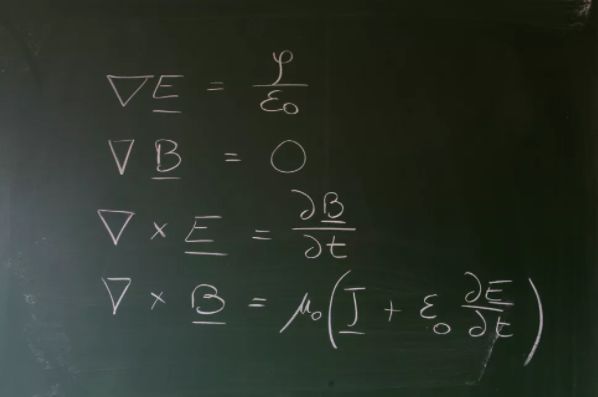 ∇E̲ = ρ/ε₀
∇B̲ = 0
∇ × E̲ = ∂B̲/∂t
∇ × B̲ = μ₀(J̲ + ε₀ ∂E̲/∂t)